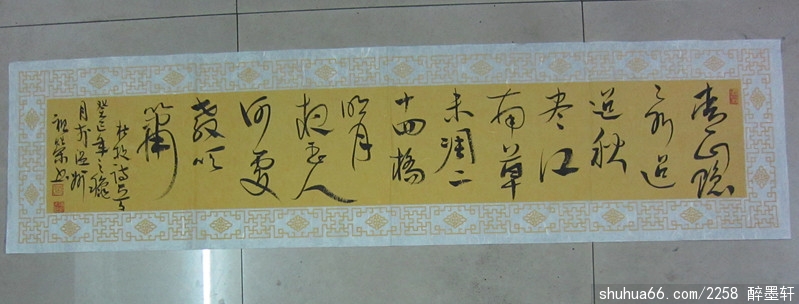 青山隐
〻水迢
迢秋
尽江
南草
未凋二
十四橋
明月
夜玉人
何處
教吹
簫
杜牧诗一首
癸巳年之秋
月于温州
shuhua66.com/2258 醉墨轩